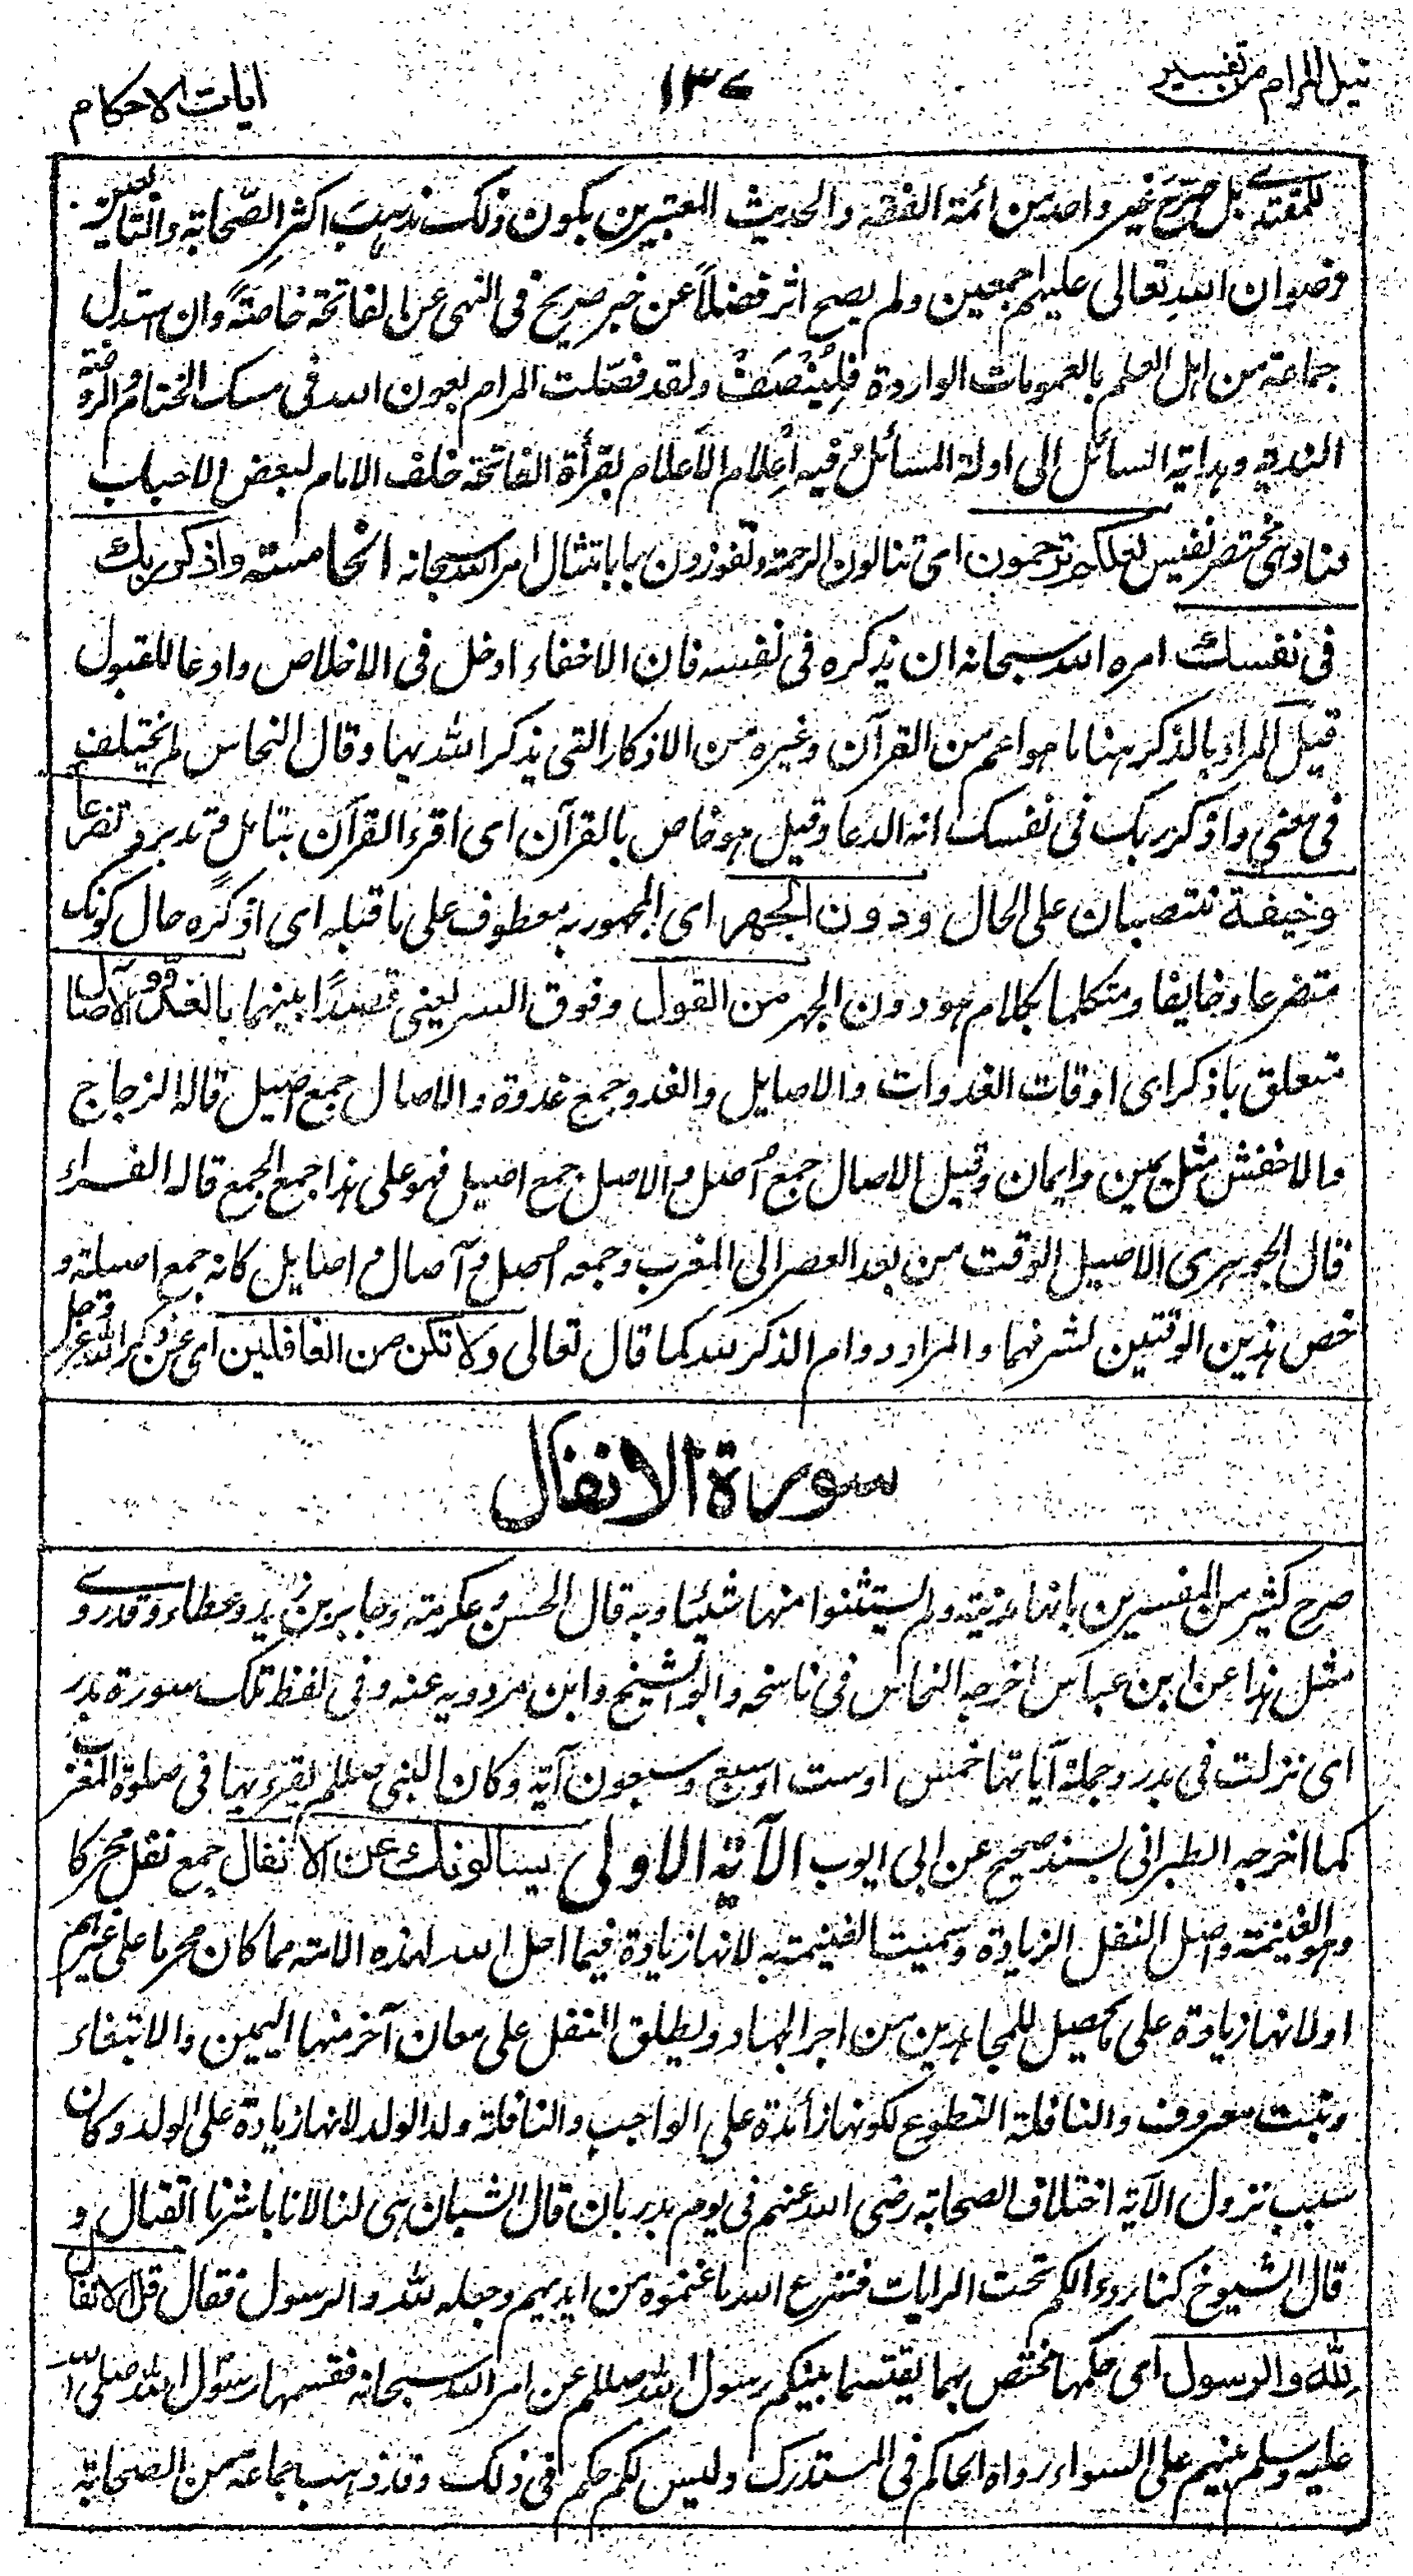 نيل المرام من تفسير
١٣٧
ايات الاحكام
للمقتدے بل صرّح غير واحد من ائمة الفقه والحديث المعتبرين بكون ذلك مذهب اكثر الصّحابة والتابعين
رضوان الله تعالى عليهم اجمعين ولم يصح اثر فضلاً عن خبر صريح فى النهى عن الفاتحة خاصةً وان استدل
جماعة من اهل العلم بالعمومات الواردة فليُنْصَفْ ولقد فصّلت المرام بعون الله فى مسك الختام والروضة
الندية وهداية السائل الى ادلة المسائل وفيه اِعلام الاَعلام بقرأة الفاتحة خلف الامام لبعض الاحباب
مختصر نفيس لعلكم ترحمون اى تنالون الرحمة وتفوزون بها بامتثال امر الله سبحانه الخامسة واذكر ربك
فى نفسك امره الله سبحانه ان يذكره فى نفسه فان الاخفاء ادخل فى الاخلاص وادعا للقبول
قيل المراد بالذكر هنا ما هو اعم من القرآن وغيره من الاذكار التى يذكر الله بها وقال النحاس لم يختلف
فى معنى واذكر ربك فى نفسك انه الدعا وقيل هو خاص بالقرآن اى اقرء القرآن بتامل وتدبر وتضرعا
وخيفة تتصبان على الحال ودون الجهر اى المجهور به معطوف على ما قبله اى اذكره حال كونك
متضرعا وخايفا ومتكلما بكلام هو دون الجهر من القول وفوق السر يعنى قصدًا بينهما بالغدوّ والآصال
متعلق باذكر اى اوقات الغدوات والاصايل والغدو جمع غدوة والاصال جمع اصيل قاله الزجاج
والاخفش مثل يمين وايمان وقيل الاصال جمع اُصل والاصل جمع اصيل فهو على هذا جمع الجمع قاله الفراء
قال الجوهرى الاصيل الوقت من بعد العصر الى المغرب وجمعه اُصل وآصال واصايل كانه جمع اصيلة و
خص هذين الوقتين لشرفهما والمراد دوام الذكر لله كما قال تعالى ولا تكن من الغافلين اى عن ذكر الله عز وجل
سورة الانفال
صرح كثير من المفسرين بانها مدنية ولم يستثنوا منها شيئا وبه قال الحسن وعكرمة وجابر بن زيد وعطاء وقد روے
مثل هذا عن ابن عباس اخرجه النحاس فى ناسخه وابو الشيخ وابن مردويه عنه وفى لفظ تلك سورة بدر
اى نزلت فى بدر وجملة آياتها خمس اوست اوسبع وسبعون آية وكان النبى صللم يقرء بها فى صلوة المغرب
كما اخرجه الطبرانى بسند صحيح عن ابى ايوب الآية الاولى يسالونك عن الانفال جمع نفل محركا
وهو الغنيمة واصل النفل الزيادة وسميت الغنيمة به لانها زيادة فيما احل الله لهذه الامة مما كان محرما على غيرهم
اولانها زيادة على ما يحصل للمجاهدين من اجر الجهاد ويطلق النفل على معان آخر منها اليمين والابتغاء
ونبت معروف والنافلة التطوع لكونها زائدة على الواجب والنافلة ولد الولد لانها زيادة على الولد وكان
سبب نزول الآية اختلاف الصحابة رضى الله عنهم فى يوم بدر بان قال الشبان هى لنا لانا باشرنا القتال و
قال الشيوخ كنا ردءا لكم تحت الرايات فنزع الله ما غنموه من ايديهم وجعله لله والرسول فقال قل الانفال
لِلّٰه والرسول اى حكمها مختص بهما يقسمها بينكم رسول الله صللم عن امر الله سبحانه فقسمها رسول الله صلى الله
عليه وسلم بينهم على السواء رواه الحاكم فى المستدرك وليس لكم حكم فى ذلك وقد ذهب جماعة من الصحابة